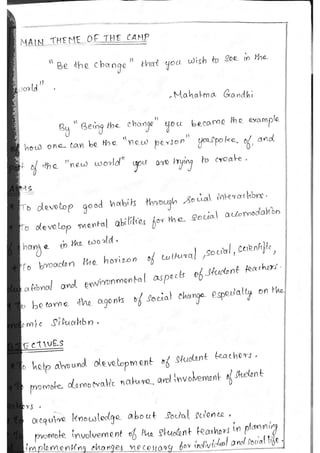 MAIN THEME OF THE CAMP
"Be the change" that you wish to see in the
world".
-Mahatma Gandhi
By "Being the change" you became the example
of how one can be the "new person" you spoke of, and
of the "new world" you are trying to create.
AIMS
To develop good habits through social interactions.
To develop mental abilities for the social accommodation
change in the world.
To broaden the horizon of cultural, social, scientific,
ational and environmental aspects of student teachers.
To become the agents of social change especially on the
demic situation.
OBJECTIVES
To help around development of student teachers.
To promote democratic nature, and involvement of student
hers.
To acquire knowledge about social science.
To promote involvement of the student teachers in planning
implementing changes necessary for individual and social life.